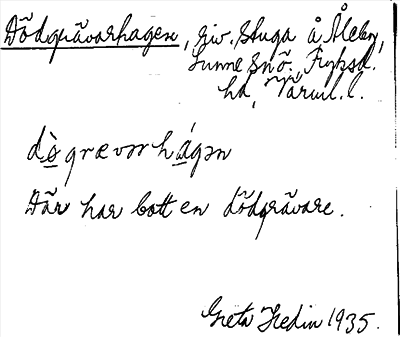 Dödgrävarhagen, riv. stuga å Åleby,
Sunne snö., Fryksd.
hd, Värml. l.
dò̱grævorhá̱gən
Där har bott en dödgrävare.
Greta Hedin 1935.